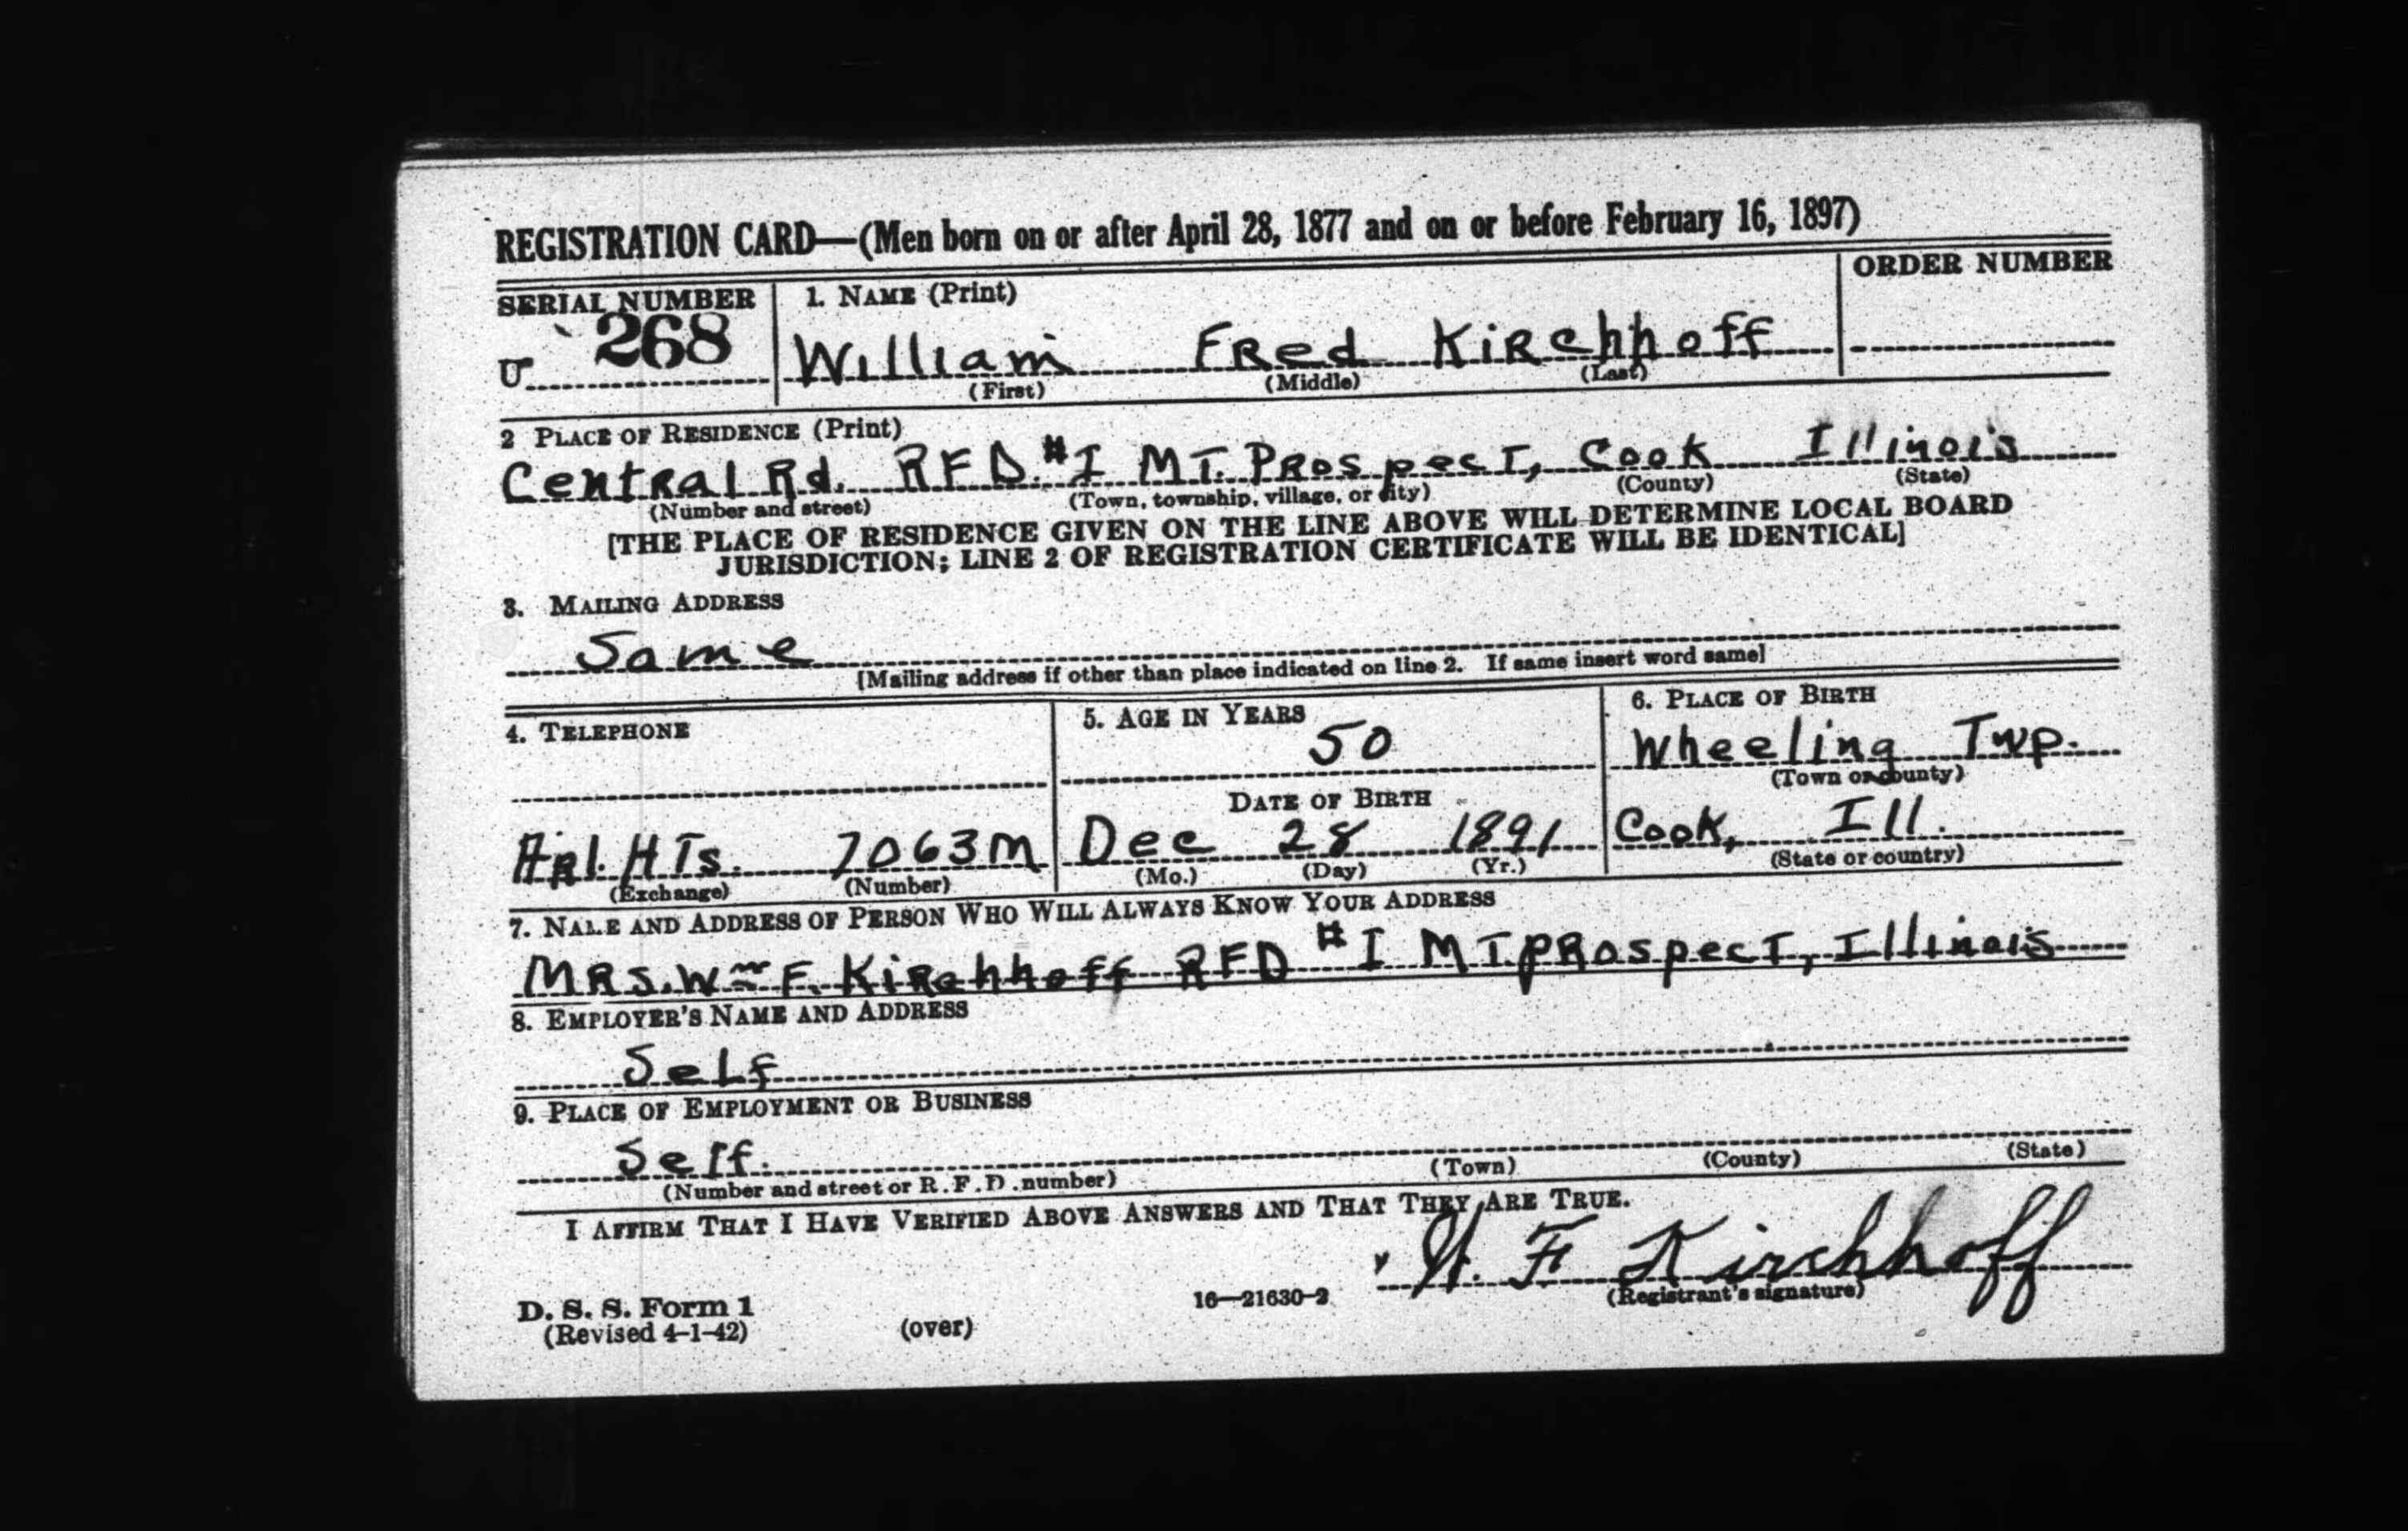 REGISTRATION CARD—(Men born on or after April 28, 1877 and on or before February 16, 1897)
SERIAL NUMBER
1. NAME (Print)
ORDER NUMBER
U 268
William Fred Kirchhoff
(First) (Middle) (Last)
2 PLACE OF RESIDENCE (Print)
Central Rd. RFD. #1 MT. Prospect, Cook Illinois
(Number and street) (Town, township, village, or city) (County) (State)
[THE PLACE OF RESIDENCE GIVEN ON THE LINE ABOVE WILL DETERMINE LOCAL BOARD
JURISDICTION; LINE 2 OF REGISTRATION CERTIFICATE WILL BE IDENTICAL]
3. MAILING ADDRESS
Same
[Mailing address if other than place indicated on line 2. If same insert word same]
4. TELEPHONE
5. AGE IN YEARS
6. PLACE OF BIRTH
50
Wheeling Twp.
(Town or county)
DATE OF BIRTH
Arl. HTs. 7063M
Dec 28 1891
Cook, Ill.
(Exchange) (Number)
(Mo.) (Day) (Yr.)
(State or country)
7. NAME AND ADDRESS OF PERSON WHO WILL ALWAYS KNOW YOUR ADDRESS
MRS. Wm F. Kirchhoff RFD #1 MT Prospect, Illinois
8. EMPLOYER'S NAME AND ADDRESS
Self
9. PLACE OF EMPLOYMENT OR BUSINESS
Self.
(Number and street or R.F.D. number) (Town) (County) (State)
I AFFIRM THAT I HAVE VERIFIED ABOVE ANSWERS AND THAT THEY ARE TRUE.
W. F. Kirchhoff
(Registrant's signature)
D. S. S. Form 1
(Revised 4-1-42)
(over)
16—21630-2